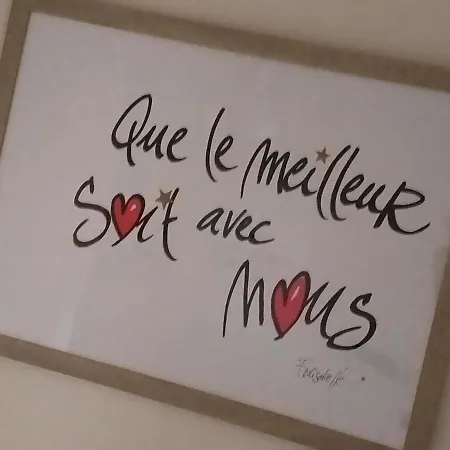 Que le meilleur
Soit avec
Nous